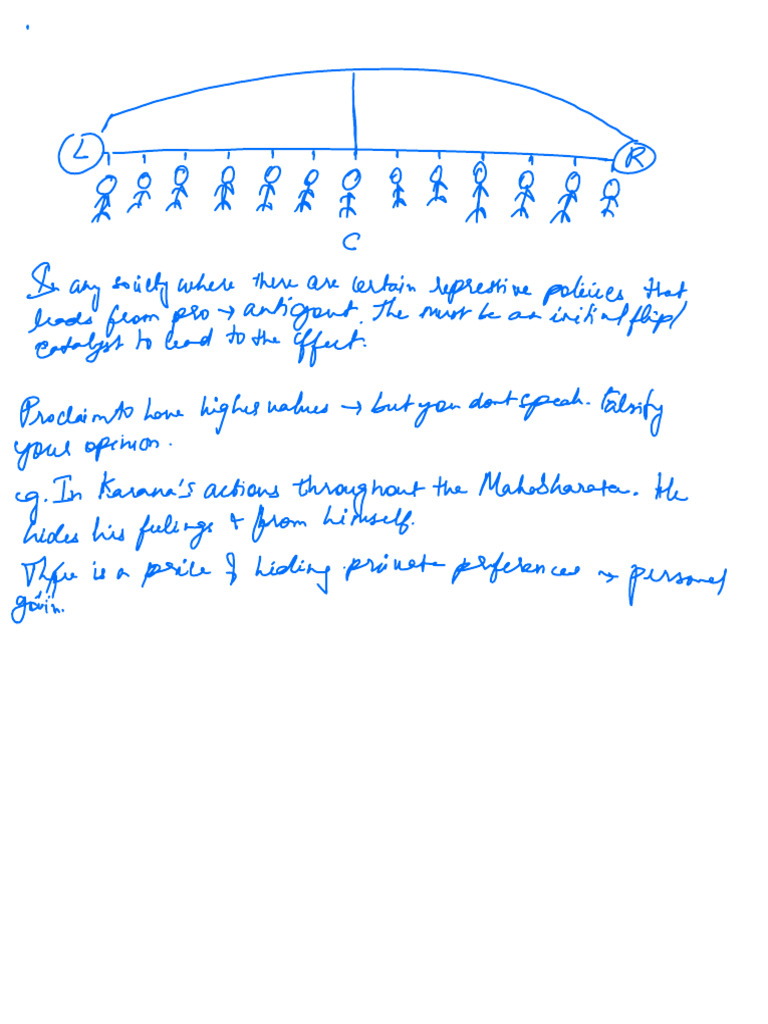 L R
C
In any society where there are certain repressive policies that
leads from pro → antigovt. The must be an initial flip/
catalyst to lead to the effect.
Proclaim to have higher values → but you dont speak. Falsify
your opinion.
eg. In Karana's actions throughout the Mahabharata. He
hides his feelings & from himself.
There is a price of hiding private preferences → personal
gain.